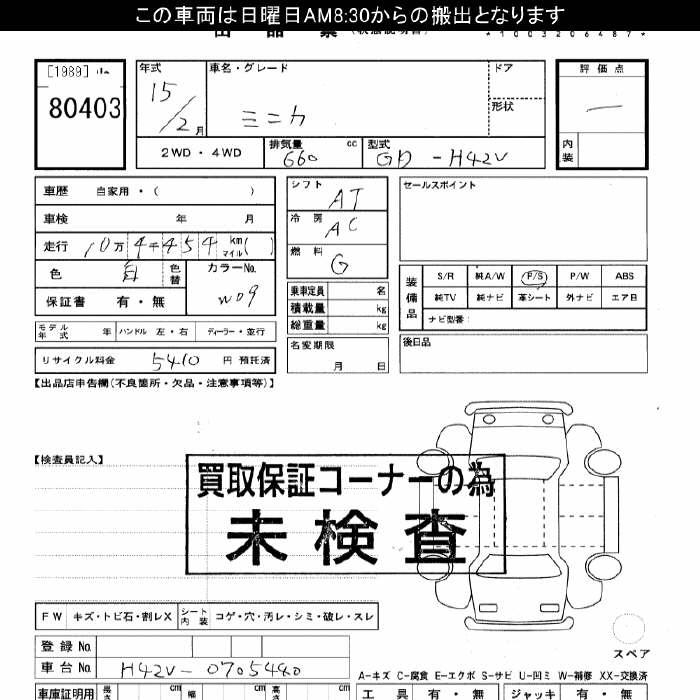 この車両は日曜日AM8:30からの搬出となります
出品票
*1003206487*
[1989]
80403
年式 車名・グレード ドア 評価点
15/2月 ミニカ 形状 —
2WD・4WD 排気量 660 cc 型式 GD - H42V 内装
車歴 自家用・( )
シフト AT
セールスポイント
車検 年 月
冷房 AC
走行 10万 4千454 km マイル( )
燃料 G
色 白 色替 カラーNo. W09
装備品 S/R 純A/W P/S P/W ABS
保証書 有・無
乗車定員 名
純TV 純ナビ 革シート 外ナビ エア日
積載量 kg
ナビ型番:
モデル年式 年 ハンドル 左・右 ディーラー・並行
総重量 kg
リサイクル料金 5410 円 預託済
名変期限 月 日
後日品
【出品店申告欄(不良箇所・欠品・注意事項等)】
【検査員記入】
買取保証コーナーの為
未検査
FW キズ・トビ石・割レX シート内装 コゲ・穴・汚レ・シミ・破レ・スレ
スペア
登録No.
車台No. H42V-0705440
A-キズ C-腐食 E-エクボ S-サビ U-凹ミ W-補修 XX-交換済
車庫証明用 長さ cm 幅 cm 高さ cm 工具 有・無 ジャッキ 有・無